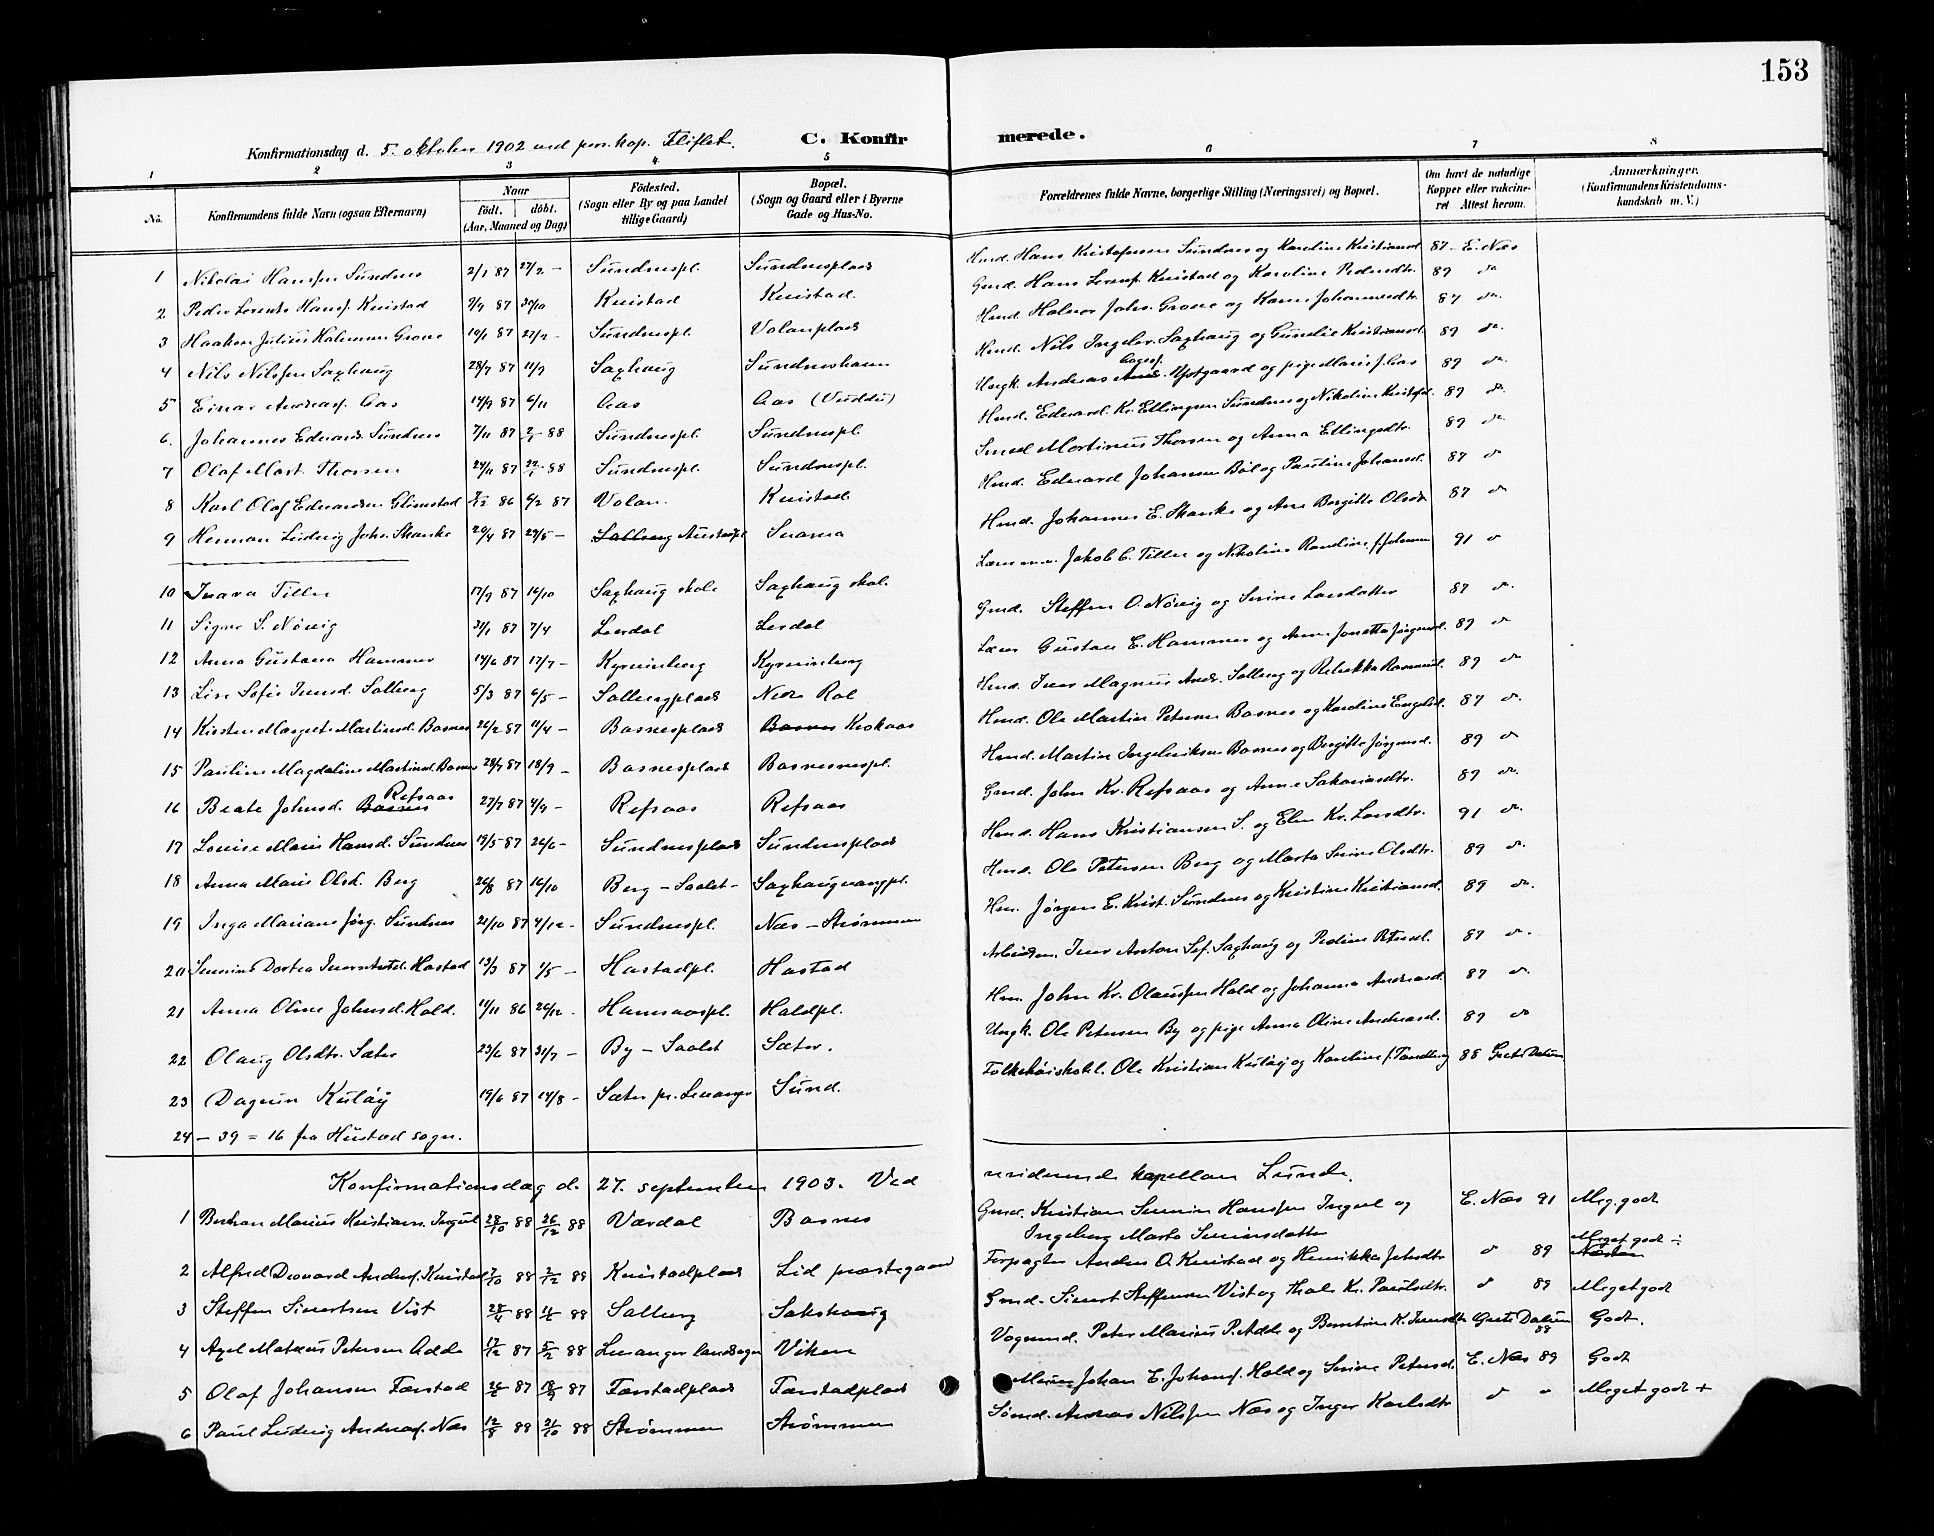 153
Konfirmationsdag d. 5. oktober 1902 ved pers. kap. Fliflet.
C. Konfirmerede.
1 2 3 4 5 6 7 8
No. Konfirmandens fulde Navn (ogsaa Efternavn)
Naar født. døbt. (Aar, Maaned og Dag)
Fødested. (Sogn eller By og paa Landet tillige Gaard)
Bopæl. (Sogn og Gaard eller i Byerne Gade og Hus-No.
Forældrenes fulde Navne, borgerlige Stilling (Næringsvei) og Bopæl.
Om havt de naturlige Kopper eller vakcineret Attest herom.
Anmærkninger. (Konfirmandens Kristendomskundskab m. V.)
1 Nikolai Hansen Sundnes 2/1 87 27/2 - Sundnespl. Sundnesplads Hmd. Hans Kristofersen Sundnes og Karoline Kristiansd. 87 - E. Næs
2 Peder Lorents Hansf. Knistad 7/9 87 30/10 Knistad Knistad. Gmd. Hans Lorensf. Knistad og Karoline Pedersdtr. 89 do
3 Haakon Julius Halvorsen Grove 19/1 87 27/2 - Sundnespl. Volanplads Hmd. Halvor Johs. Grove og Hanna Johannesdtr. 87 do.
4 Nils Nilssen Saxhaug 28/7 87 11/9 Saxhaug Sundneshavn Hmd. Nils Ingebr. Saxhaug og Gunelie Kristiansd. 89 do.
5 Einar Andreasf. Aas 14/9 87 6/11 Aas Aas (Vuddu) Ungk. Andreas Aagesf. Opstgaard og pige Marie J. Aas 89 do.
6. Johannes Edvards. Sundnes 7/11 87 2/1 88 Sundnespl. Sundnespl. Hmd. Edvard Kr. Ellingsen Sundnes og Nikoline Kristofd. 89 do
7 Olaf Mart. Thorsen 24/11 87 22/1 88 Sundnespl. Sundnespl. Smed Martinus Thorsen og Anna Ellingsdtr. 89 do
8 Karl Olaf Edvardsen Glimstad 7/12 86 6/2 87 Volan. Knistad Hmd. Edvard Johansen Bøl og Pauline Johansd. 87 do
9 Herman Ludvig Johs. Skanke 20/4 87 29/5 - Salberg Austadpl Snaasa Hmd. Johannes E. Skanke og Ane Bergitte Olsdtr 87 do
10 Ivara Tiller 17/9 87 16/10 Saxhaug skole Saxhaug skole Lærer Jakob C. Tiller og Nikoline Randine 91 do
11 Signe S. Nøvig 31/1 87 7/4 Leerdal Lerdal Gmd. Steffen O. Nøvig og Serine Larsdatter 87 do.
12 Anna Gustava Hammer 14/6 87 17/7 - Kyrvinberg Kyrvinberg Læser Gustav E. Hammer og Anne Jonetta Jørgensd. 89 do
13 Line Sofie Iversd. Salberg 5/3 87 6/5 - Salbergplads Nedre Rol Hmd. Iver Magnus Andr. Salberg og Rebekka Rasmusd. 89 do
14 Kirsten Margrete Martinsd. Bosnes 26/2 87 11/4 - Bosnesplads Bosnes Krokaas Hmd. Ole Martin Petersen Bosnes og Karoline Engelsd. 87 do.
15 Pauline Magdaline Martinsd. Bosnes 28/7 87 18/9 - Bosnesplads Bosnesnespl. Hmd. Martin Ingebriktsen Bosnes og Bergitte Jørgensd. 89 do
16 Beate Johnsd. Bosnes Refsaas 27/7 87 4/9 - Refsaas Refsaas Gmd. John Kr. Refsaas og Anne Sakariasdtr. 89 do.
17 Louise Marie Hansd. Sundnes 19/5 87 26/6 - Sundnesplads Sundnesplads Hmd. Hans Kristiansen S. og Elen Kr. Larsdtr. 91 do.
18 Anna Marie Olsd. Berg 26/8 87 16/10 Berg - Saalet - Saxhaugvangpl. Hmd. Ole Petersen Berg og Marta Serine Olsdtr. 89 do.
19 Inga Mariane Jørg. Sundnes 21/10 87 4/12 - Sundnespl. Næs - Strømmen Hm. Jørgen E. Krist. Sundnes og Kristine Kristiansd. 89 do.
20 Sevrine Dortea Hastad 13/3 87 1/5 - Hastadpl. Hastad Arbeidsm. Iver Anton Sef. Saxhaug og Pedine Petersd. 87 do.
21 Anna Oline Johnsd. Hold. 11/11 86 26/12 - Hamsaaspl. Holdpl. Hm. John Kr. Olaussen Hold og Johanna Andreasd. 87 do.
22 Olaug Olsdtr. Sæter 23/6 87 31/7 - By - Saalet Sæter. Ungk. Ole Petersen By og pige Anna Oline Andreasd. 89 do
23 Dagrun Kuløy 19/6 87 14/8 - Sæter pr. Levanger Sund. Folkehøiskolel. Ole Kristian Kuløy og Karoline f. Tandberg 88 Grete Dalum
24 - 39 = 16 fra Hustad sogn.
Konfirmationsdag d. 27. september 1903. Ved residerende kapellan Lunde.
1 Berhan Marius Kristians. Ingul 28/10 88 26/12 88 Værdal Bosnes Gmd. Kristian Severin Hanssen Ingul og Ingeborg Marta Severinsdatter E. Næs 91 Meg. godt
2 Alfred Leonard Andersf. Knistad 7/10 88 2/12 88 Knistadplads Lid præstegaard Forpagter Anders O. Knistad og Henrikka Johsdtr do 89 Meget godt ÷ Næsten
3 Steffen Sivertsen Vist 28/4 88 88 Salberg Sakshaug Gmd. Sivert Steffensen Vist og Thale Kr. Paulsdtr. do 89 Meget godt
4 Axel Mateus Petersen Adde 17/12 87 5/2 88 Levanger landsogn Viken Vognmd. Peter Marius P. Adde og Berntine K. Iversdtr Grete Dalum 88 Godt.
5 Olaf Johansen Færstad 26/6 87 87 Færstadplads Færstadplads Murer Johan E. Johansf. Hold og Serine Petersd. E. Næs 89 Godt
6 Paul Ludvig Andreasf. Næs 12/8 88 21/10 88 Strømmen Strømmen Sømd. Andreas Nilssen Næs og Inger Karlsdtr do " Meget godt +